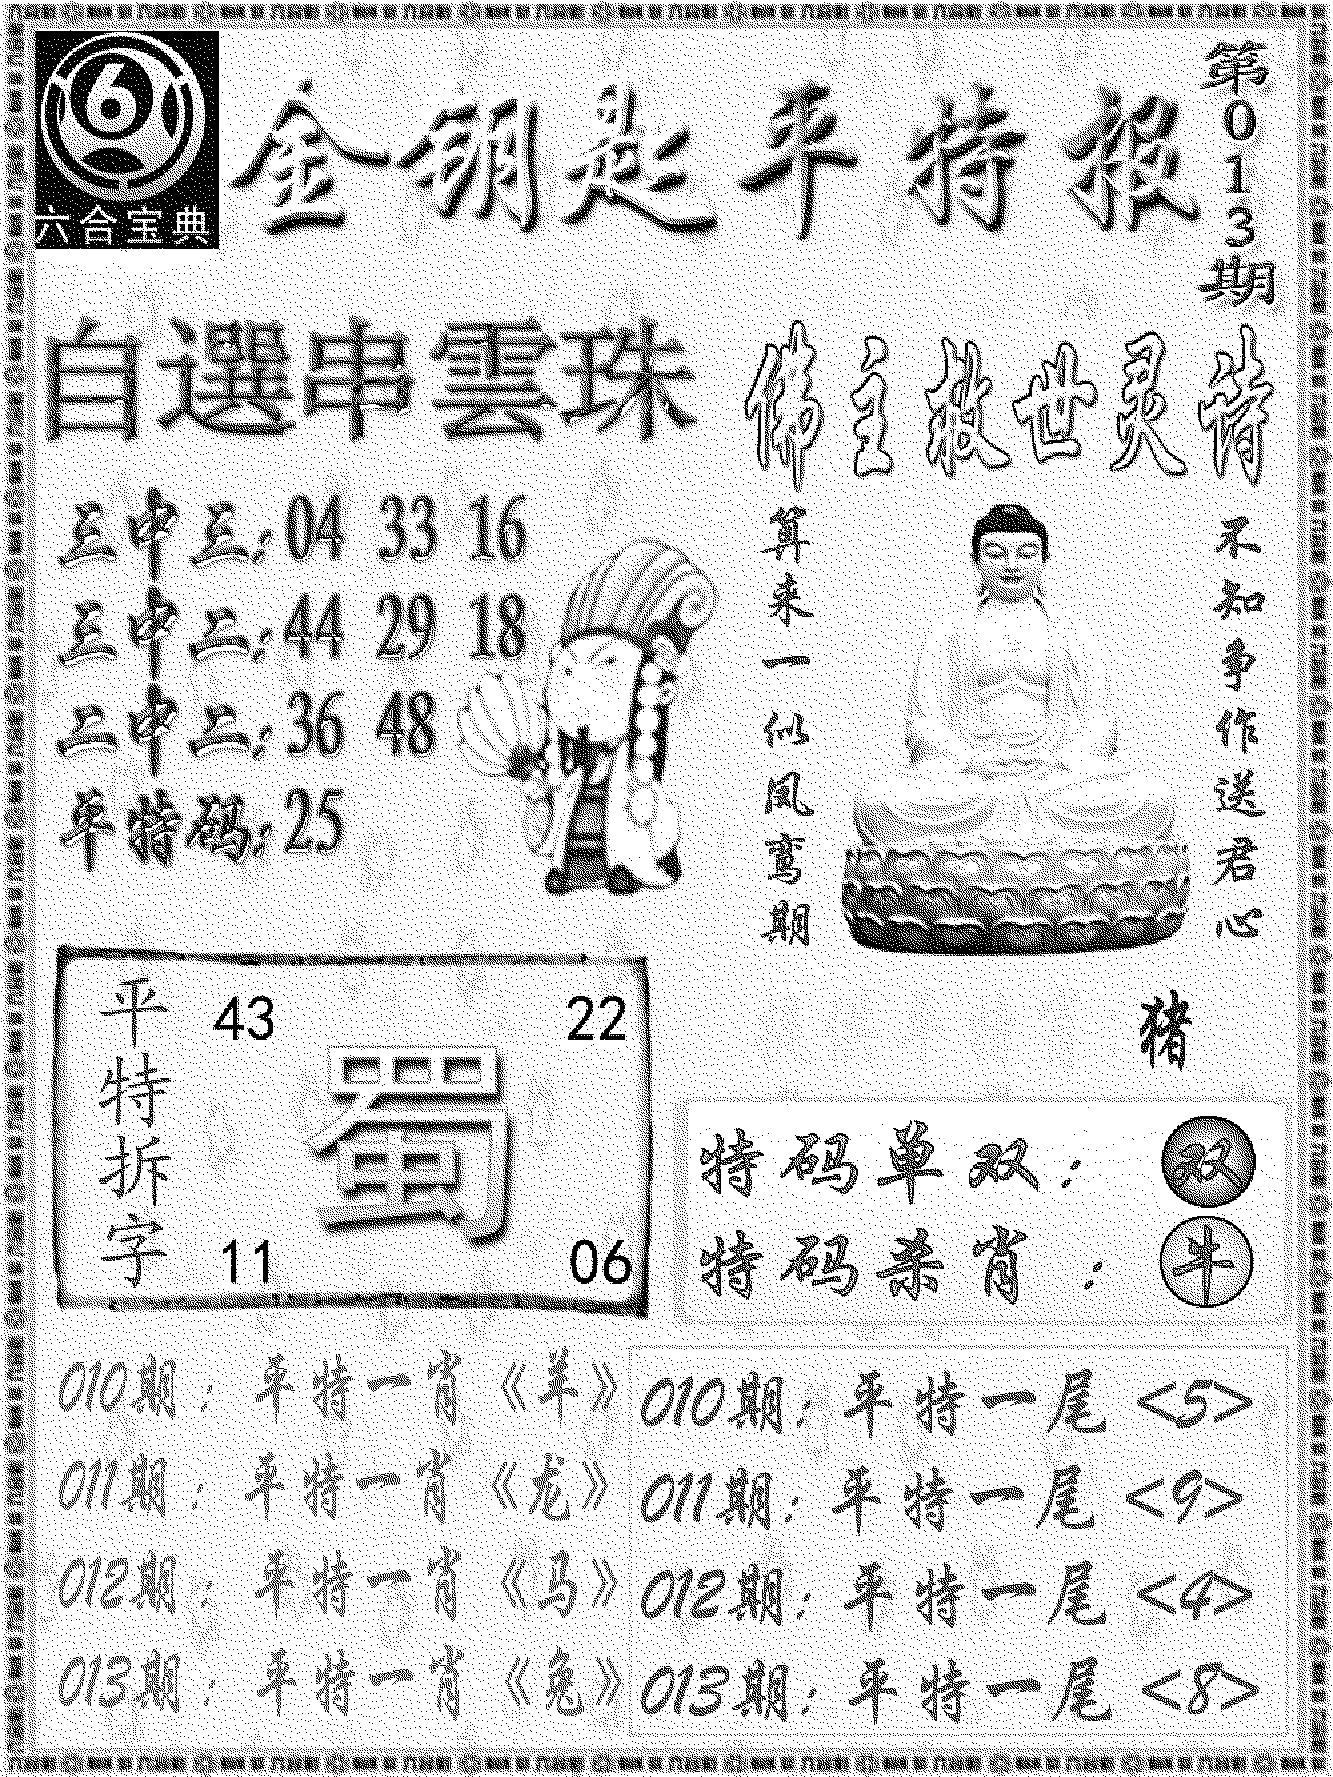 6
六合宝典
金钥匙平特报
第013期
自選串雲珠
三中三：04 33 16
三中二：44 29 18
二中二：36 48
平特码：25
佛主救世灵诗
算来一似凤鸾期
不知争作送君心
猪
平特拆字
43 22
蜀
11 06
特码单双： 双
特码杀肖： 牛
010期： 平特一肖《羊》
011期： 平特一肖《龙》
012期： 平特一肖《马》
013期： 平特一肖《兔》
010期：平特一尾<5>
011期：平特一尾<9>
012期：平特一尾<4>
013期：平特一尾<8>